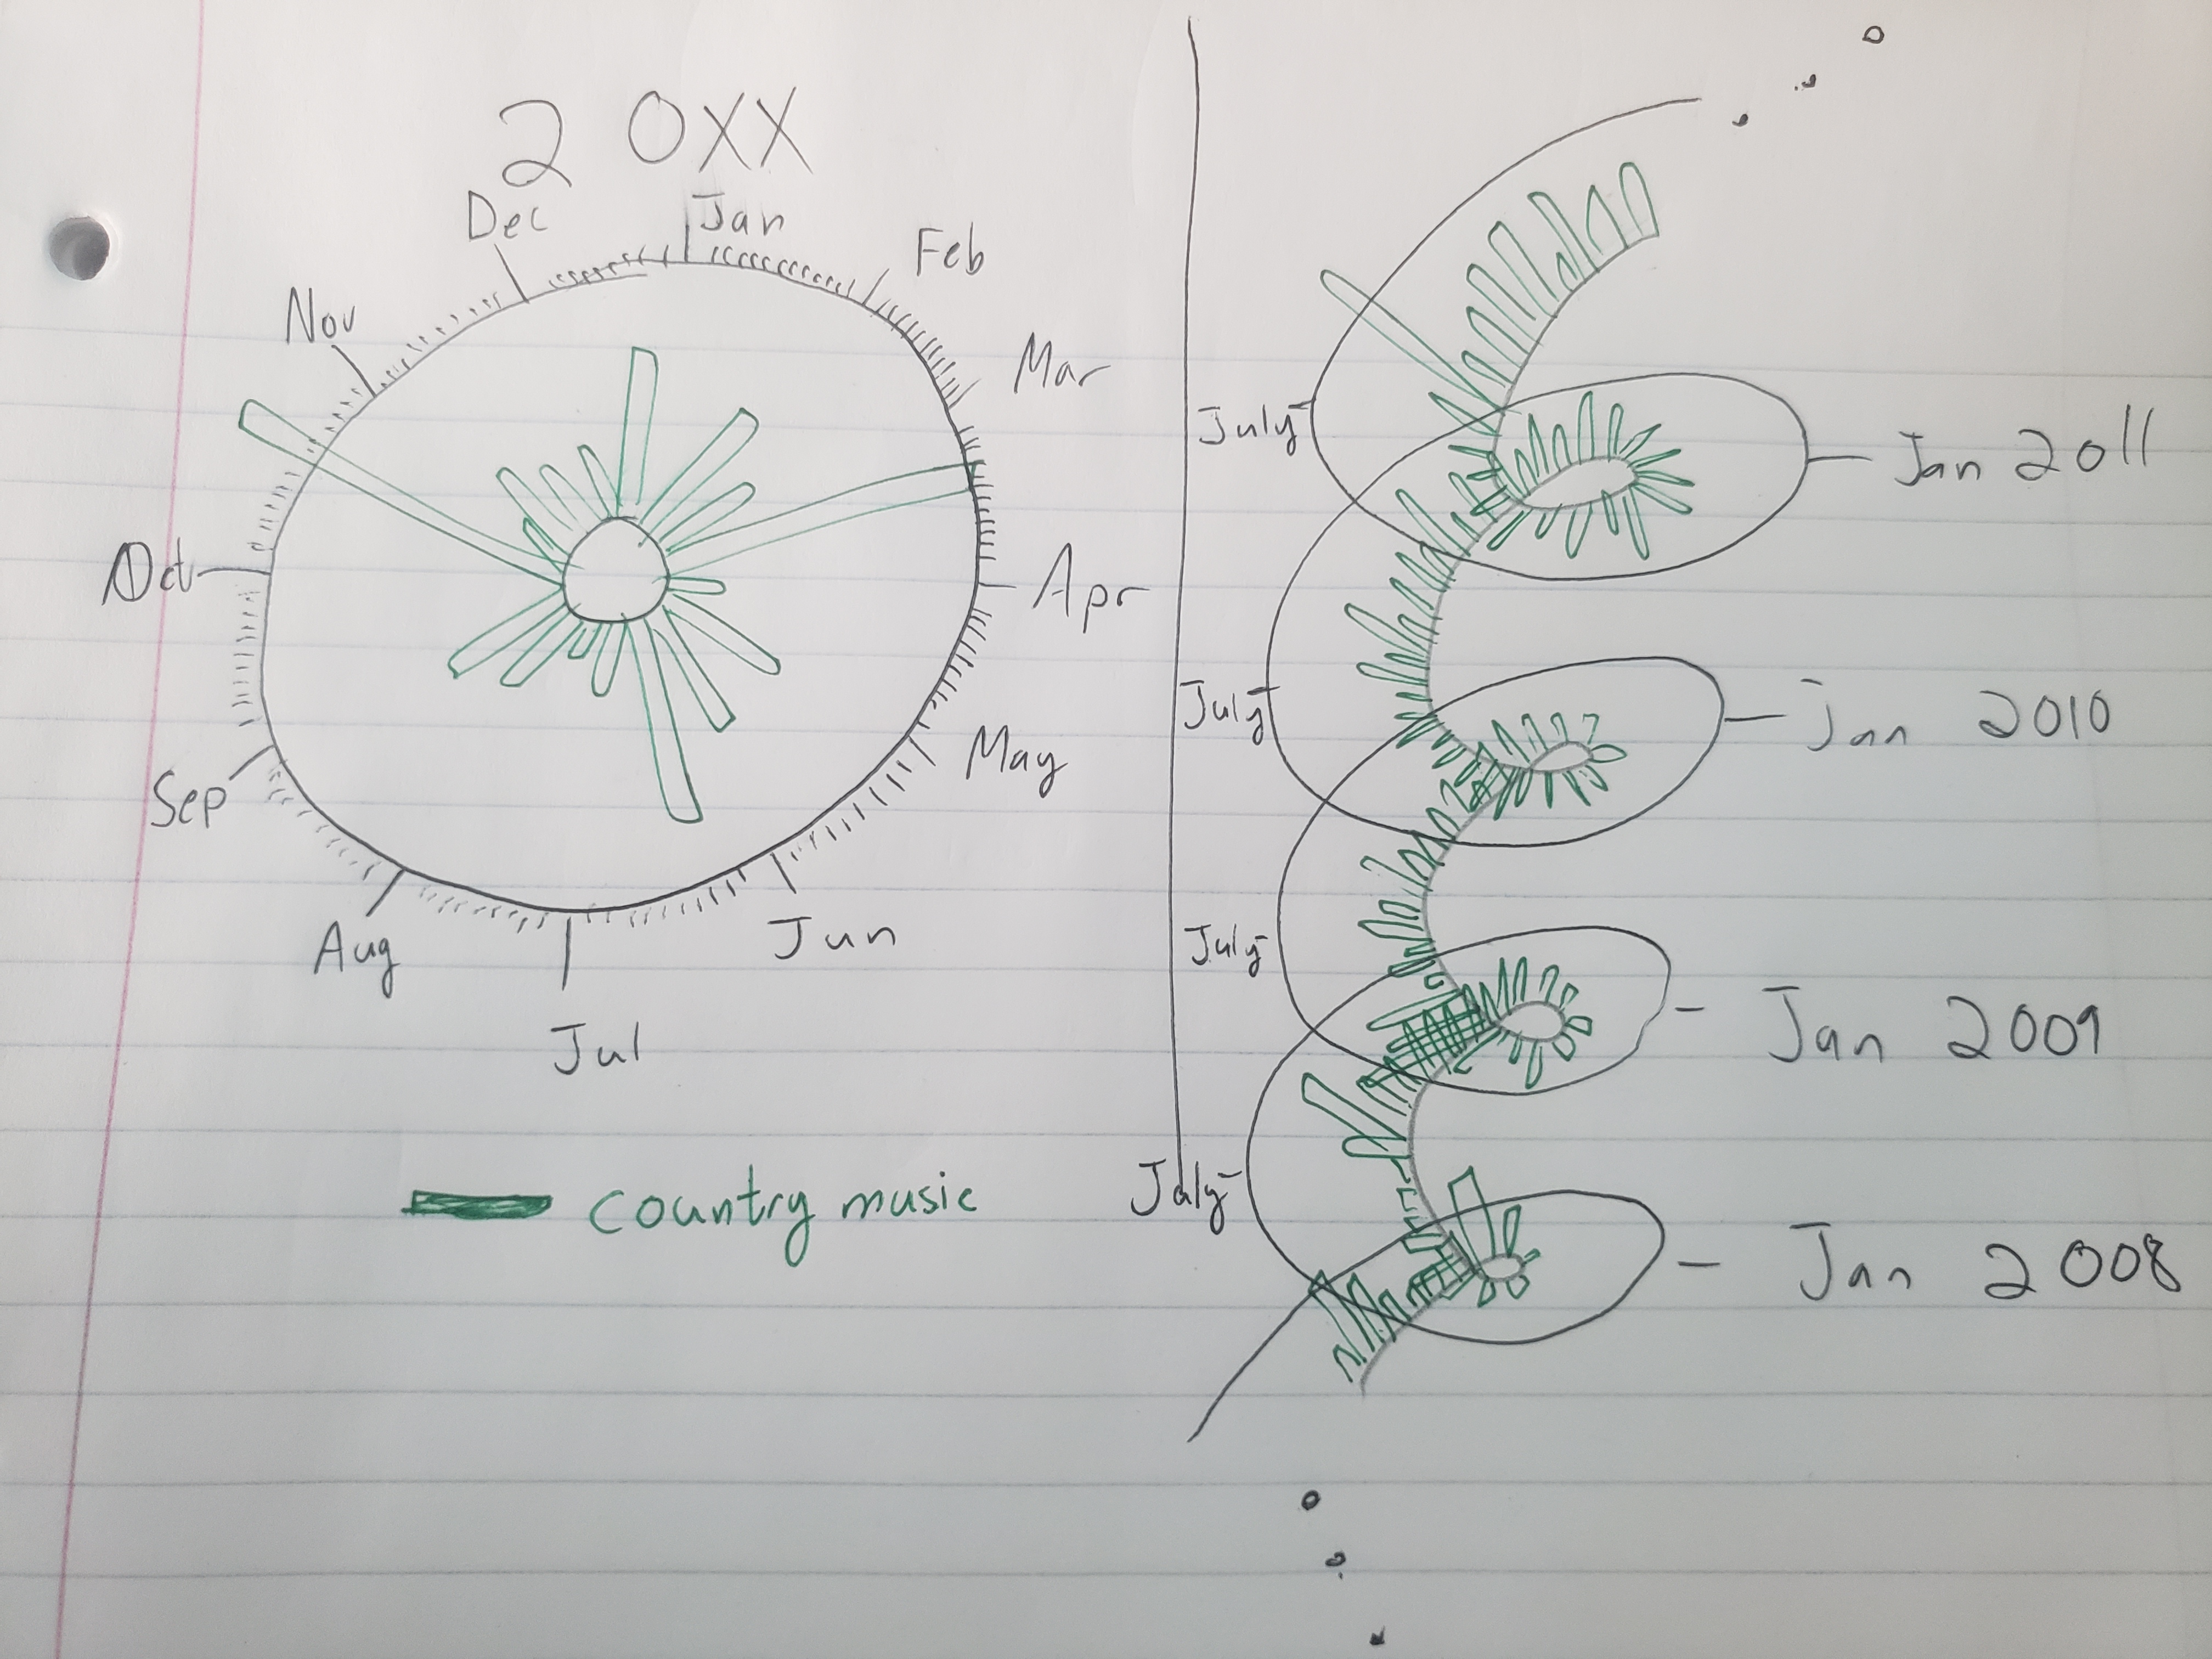 20XX
Dec
Jan
Feb
Nov
Mar
Oct
Apr
Sep
May
Aug
Jun
Jul
country music
July
Jan 2011
July
Jan 2010
July
Jan 2009
July
Jan 2008